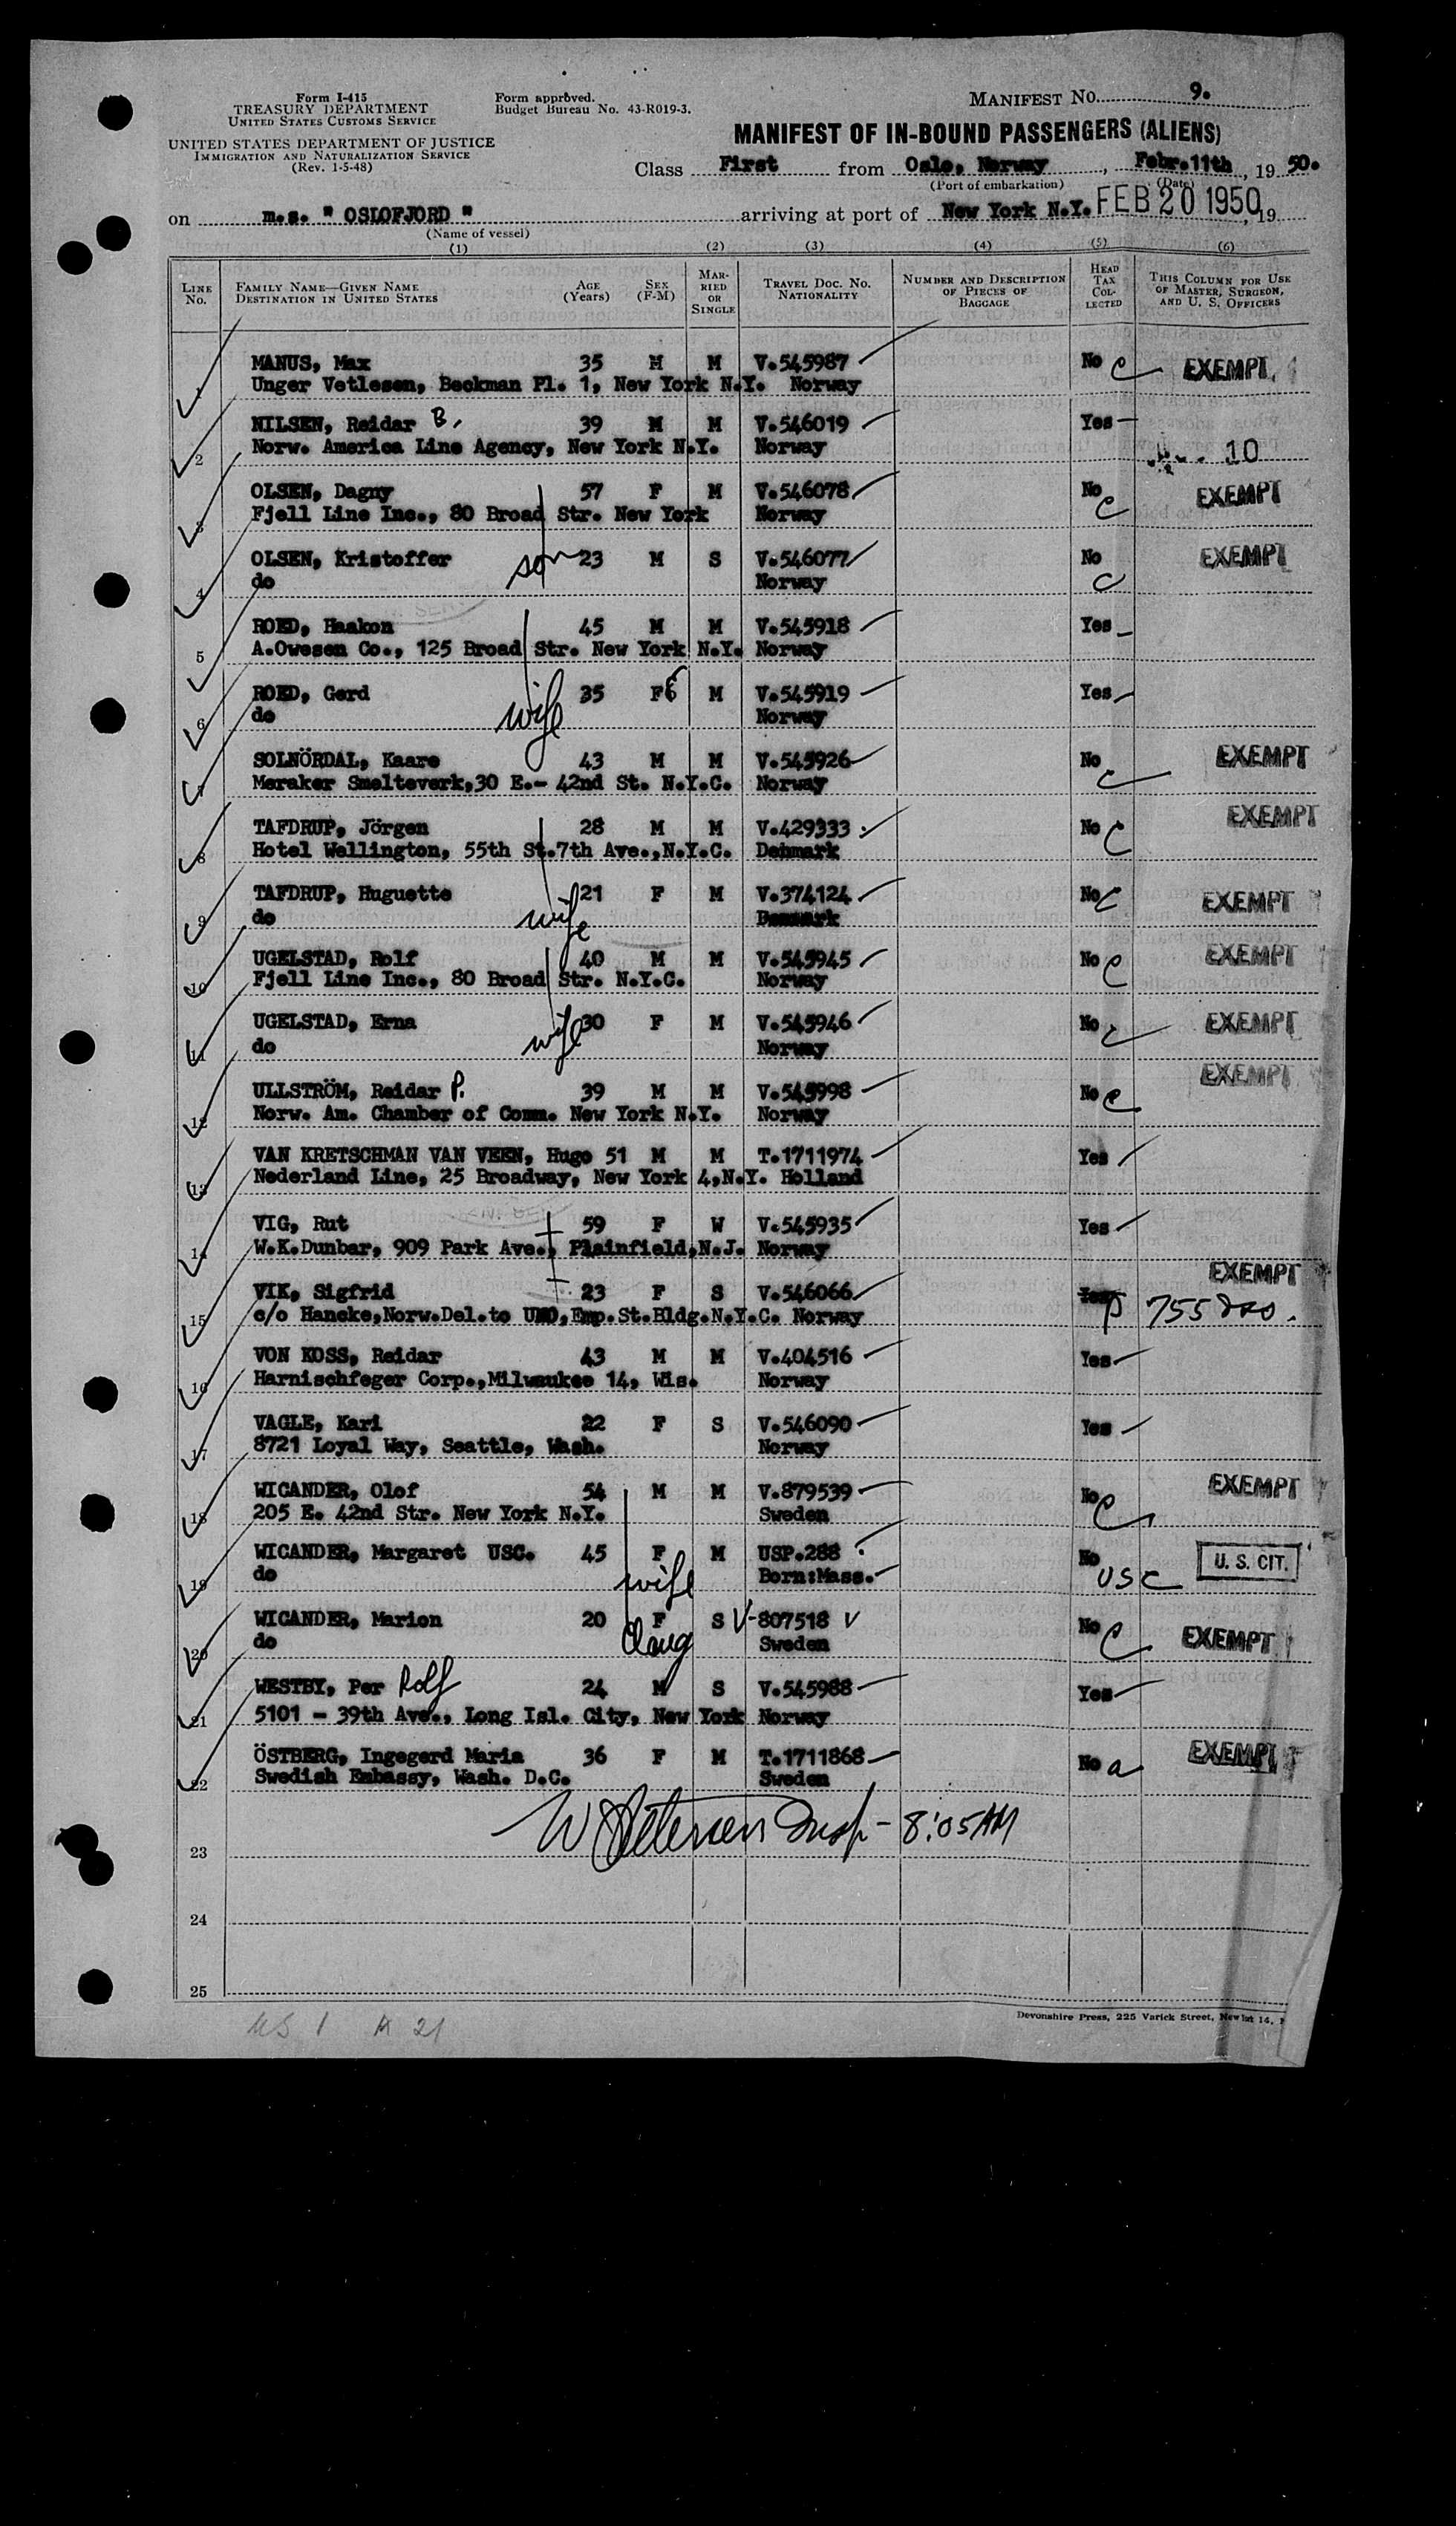 Form I-415
TREASURY DEPARTMENT
UNITED STATES CUSTOMS SERVICE
UNITED STATES DEPARTMENT OF JUSTICE
IMMIGRATION AND NATURALIZATION SERVICE
(Rev. 1-5-48)
Form approved.
Budget Bureau No. 43-R019-3.
MANIFEST NO. 9.
MANIFEST OF IN-BOUND PASSENGERS (ALIENS)
Class First from Oslo, Norway, Febr.11th, 19 50.
(Port of embarkation) (Date)
on m.s. " OSLOFJORD " arriving at port of New York N.Y. FEB 20 1950, 19
(Name of vessel)
(1) (2) (3) (4) (5) (6)
LINE No. FAMILY NAME—GIVEN NAME DESTINATION IN UNITED STATES AGE (Years) SEX (F-M) MARRIED OR SINGLE TRAVEL DOC. NO. NATIONALITY NUMBER AND DESCRIPTION OF PIECES OF BAGGAGE HEAD TAX COLLECTED THIS COLUMN FOR USE OF MASTER, SURGEON, AND U. S. OFFICERS
MANUS, Max 35 M M V.545987 No C EXEMPT
1 Unger Vetlesen, Beekman Pl. 1, New York N.Y. Norway
NILSEN, Reidar B. 39 M M V.546019 Yes
2 Norw. America Line Agency, New York N.Y. Norway 10
OLSEN, Dagny 57 F M V.546078 No C EXEMPT
3 Fjell Line Inc., 80 Broad Str. New York Norway
OLSEN, Kristoffer son 23 M S V.546077 No C EXEMPT
4 do Norway
ROED, Haakon 45 M M V.545918 Yes
5 A.Owesen Co., 125 Broad Str. New York N.Y. Norway
ROED, Gerd wife 35 F M V.545919 Yes
6 do Norway
SOLNÖRDAL, Kaare 43 M M V.545926 No C EXEMPT
7 Meraker Smelteverk,30 E.- 42nd St. N.Y.C. Norway
TAFDRUP, Jörgen 28 M M V.429333 No C EXEMPT
8 Hotel Wellington, 55th St.7th Ave.,N.Y.C. Denmark
TAFDRUP, Huguette wife 21 F M V.374124 No C EXEMPT
9 do Denmark
UGELSTAD, Rolf 40 M M V.545945 No C EXEMPT
10 Fjell Line Inc., 80 Broad Str. N.Y.C. Norway
UGELSTAD, Erna wife 30 F M V.545946 No C EXEMPT
11 do Norway
ULLSTRÖM, Reidar P. 39 M M V.545998 No C EXEMPT
12 Norw. Am. Chamber of Comm. New York N.Y. Norway
VAN KRETSCHMAN VAN VEEN, Hugo 51 M M T.1711974 Yes
13 Nederland Line, 25 Broadway, New York 4,N.Y. Holland
VIG, Rut 59 F W V.545935 Yes
14 W.K.Dunbar, 909 Park Ave., Plainfield,N.J. Norway
VIK, Sigfrid 23 F S V.546066 Yes EXEMPT
15 c/o Hancke,Norw.Del.to UNO,Emp.St.Bldg.N.Y.C. Norway 755
VON KOSS, Reidar 43 M M V.404516 Yes
16 Harnischfeger Corp.,Milwaukee 14, Wis. Norway
VAGLE, Kari 22 F S V.546090 Yes
17 8721 Loyal Way, Seattle, Wash. Norway
WICANDER, Olof 54 M M V.879539 No C EXEMPT
18 205 E. 42nd Str. New York N.Y. Sweden
WICANDER, Margaret USC. 45 F M USP.288 No USC U. S. CIT.
19 do wife Born:Mass.
WICANDER, Marion 20 F S V-807518 No C EXEMPT
20 do Daug Sweden
WESTBY, Per Rolf 24 M S V.545988 Yes
21 5101 - 39th Ave., Long Isl. City, New York Norway
ÖSTBERG, Ingegerd Maria 36 F M T.1711868 No a EXEMPT
22 Swedish Embassy, Wash. D.C. Sweden
W Petersen Insp - 8:05 AM
23
24
25
US 1 A 21
Devonshire Press, 225 Varick Street, New 14,